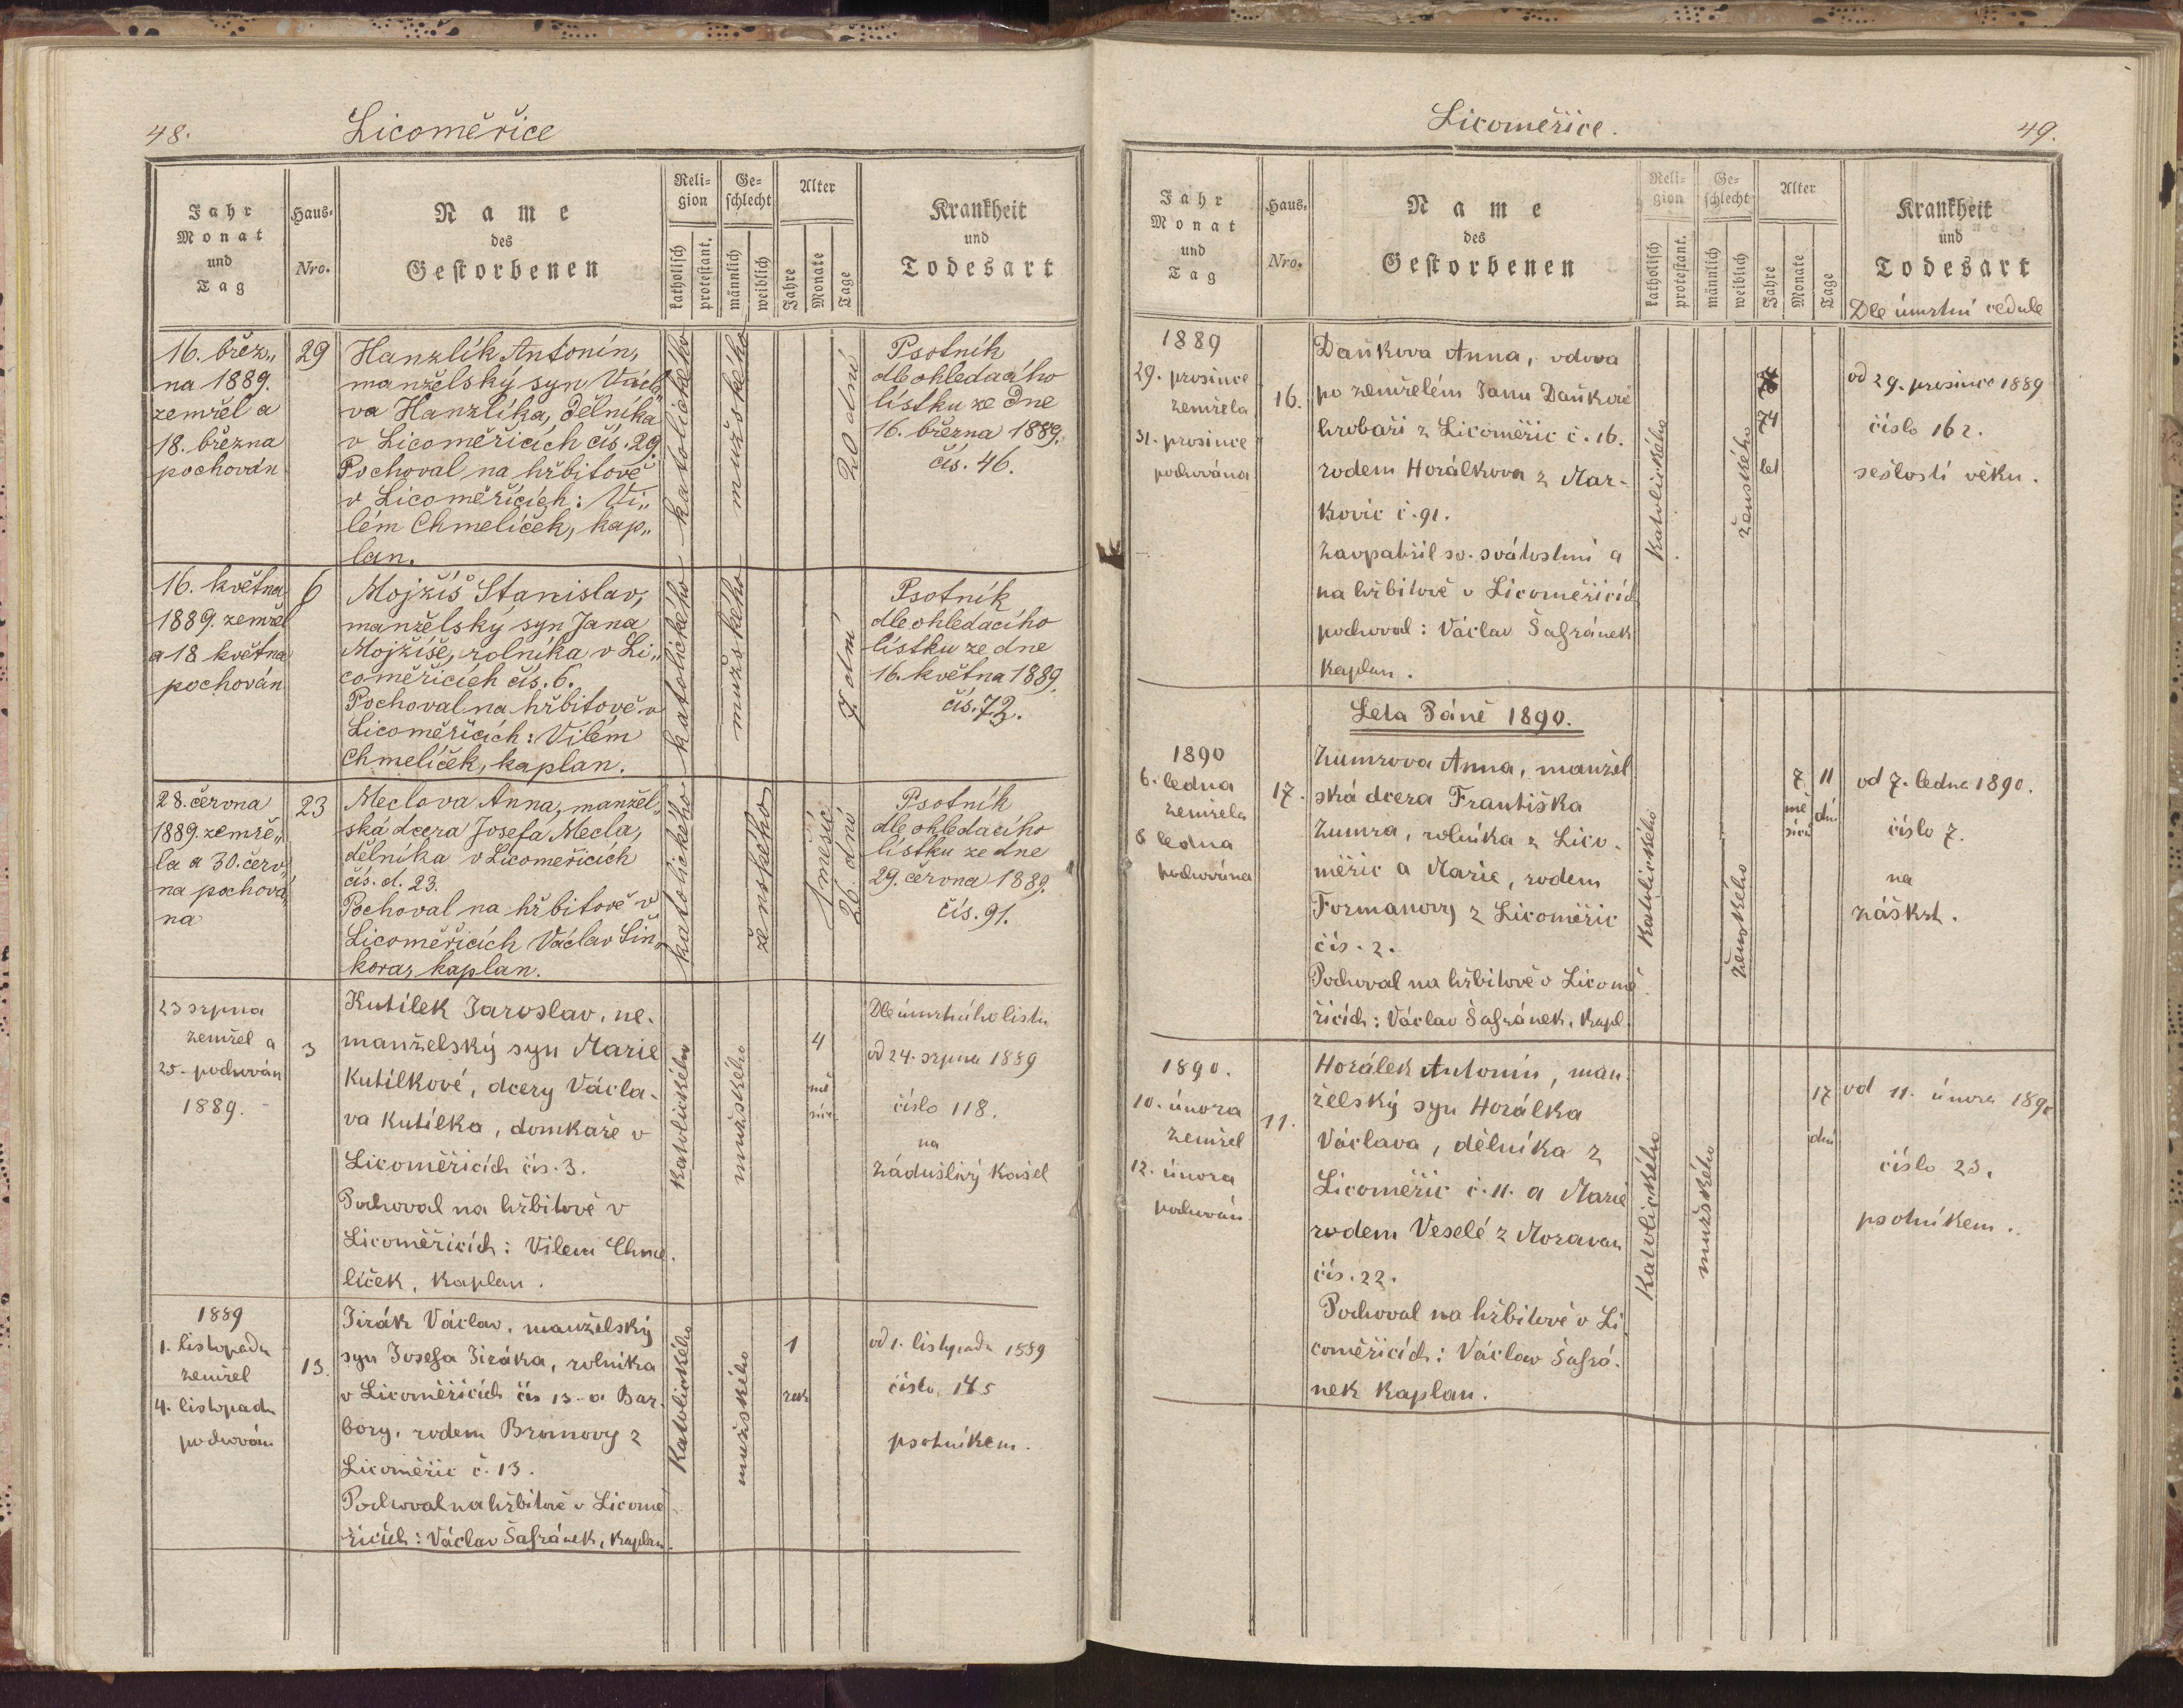 48. Licoměřice
Jahr
Monat
und
Tag
Haus-
Nro.
Name
des
Gestorbenen
Reli-
gion
katholisch
protestant.
Ge-
schlecht
männlich
weiblich
Alter
Jahre
Monate
Tage
Krankheit
und
Todesart
16. břez„
na 1889.
zemřel a
18. března
pochován
29
Hanzlík Antonín,
manželský syn Václ„
va Hanzlíka, dělníka
v Licoměřicích čís. 29.
Pochoval na hřbitově
v Licoměřicích: Vi„
lém Chmelíček, kap„
lan.
katolického
mužského
20 dní
Psotník
dle ohledacího
lístku ze dne
16. března 1889.
čís. 46.
16. května
1889. zemřel
a 18 května
pochován
6
Mojžíš Stanislav,
manželský syn Jana
Mojžíše, rolníka v Li„
coměřicích čís. 6.
Pochoval na hřbitově v
Licoměřicích: Vilém
Chmelíček, kaplan.
katolického
mužského
7 dní
Psotník
dle ohledacího
lístku ze dne
16. května 1889.
čís. 72.
28. června
1889. zemře„
la a 30. červ„
na pochová„
na
23
Meclova Anna, manžel„
ská dcera Josefa Mecla,
dělníka v Licoměřicích
čís. d. 23.
Pochoval na hřbitově v
Licoměřicích Václav Šin„
kora, kaplan.
katolického
ženského
1 měsíc
26 dní
Psotník
dle ohledacího
lístku ze dne
29. června 1889.
čís. 91.
23 srpna
zemřel a
25. pochován
1889.
3
Kutílek Jaroslav, ne-
manželský syn Marie
Kutílkové, dcery Václa-
va Kutílka, domkaře v
Licoměřicích čís. 3.
Pochoval na hřbitově v
Licoměřicích: Vilém Chme-
líček, kaplan.
Katolického
mužského
4
mě
síce
Dle úmrtního listu
od 24. srpna 1889
číslo 118.
na
zádušlivý kašel
1889
1. listopadu
zemřel
4. listopadu
pochován
13.
Jirák Václav, manželský
syn Josefa Jiráka, rolníka
v Licoměřicích čís 13. a Bar-
bory, rodem Bromovy z
Licoměřic č. 13.
Pochoval na hřbitově v Licomě-
řicích: Václav Šafránek, kaplan.
Katolického
mužského
1
rok
od 1. listopadu 1889
číslo 145
psotníkem.
Licoměřice. 49.
Jahr
Monat
und
Tag
Haus-
Nro.
Name
des
Gestorbenen
Reli-
gion
katholisch
protestant.
Ge-
schlecht
männlich
weiblich
Alter
Jahre
Monate
Tage
Krankheit
und
Todesart
Dle úmrtní cedule
1889
29. prosince
zemřela
31. prosince
pochována
16.
Daňkova Anna, vdova
po zemřelém Janu Daňkovi
hrobaři z Licoměřic č. 16.
rodem Horálkova z Mar-
kovic č. 91.
Zaopatřil sv. svátostmi a
na hřbitově v Licoměřicích
pochoval: Václav Šafránek
kaplan.
Katolického
ženského
74
let
od 29. prosince 1889
číslo 162.
sešlostí věku.
Leta Páně 1890.
1890
6. ledna
zemřela
8 ledna
pochována
17.
Zumrova Anna, manžel
ská dcera Františka
Zumra, rolníka z Lico-
měřic a Marie, rodem
Formanovy z Licoměřic
čís. 2.
Pochoval na hřbitově v Licomě
řicích: Václav Šafránek, kapl.
Katolického
ženského
7
mě
síců
11
dní
od 7. ledna 1890.
číslo 7.
na
záškrt.
1890.
10. února
zemřel
12. února
pochován.
11.
Horálek Antonín, man-
želský syn Horálka
Václava, dělníka z
Licoměřic č. 11. a Marie
rodem Veselé z Moravan
čís. 22.
Pochoval na hřbitově v Li
coměřicích: Václav Šafrá-
nek kaplan.
Katolického
mužského
17
dní
od 11. února 1890
číslo 23.
psotníkem.